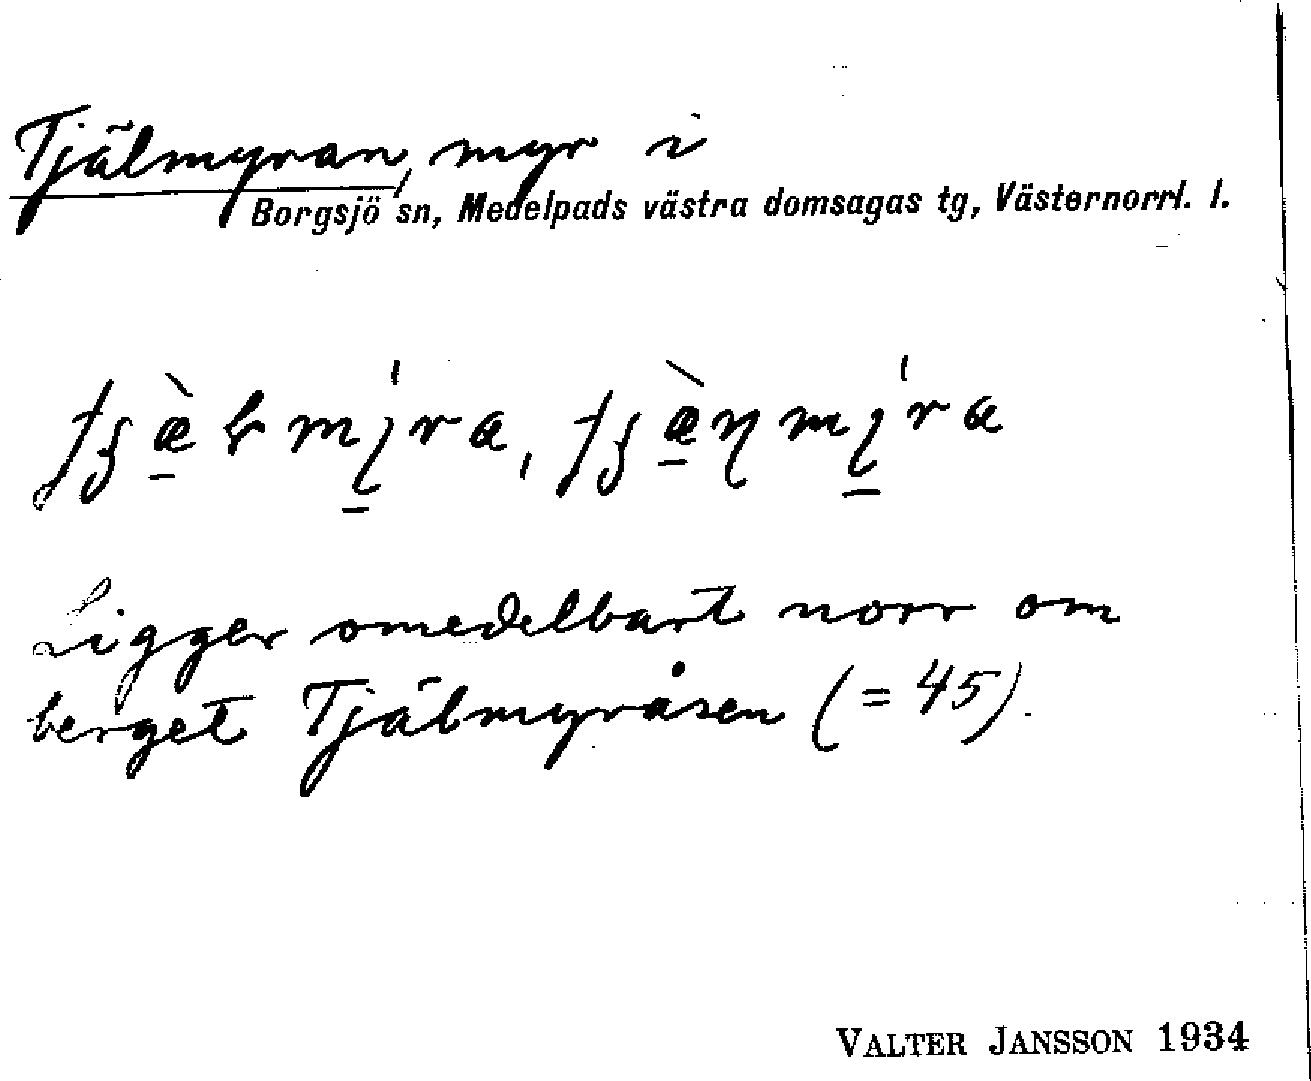 Tjälmyran, myr i
Borgsjö sn, Medelpads västra domsagas tg, Västernorrl. l.
Ligger omedelbart norr om
berget Tjälmyråsen (= 45).
VALTER JANSSON 1934